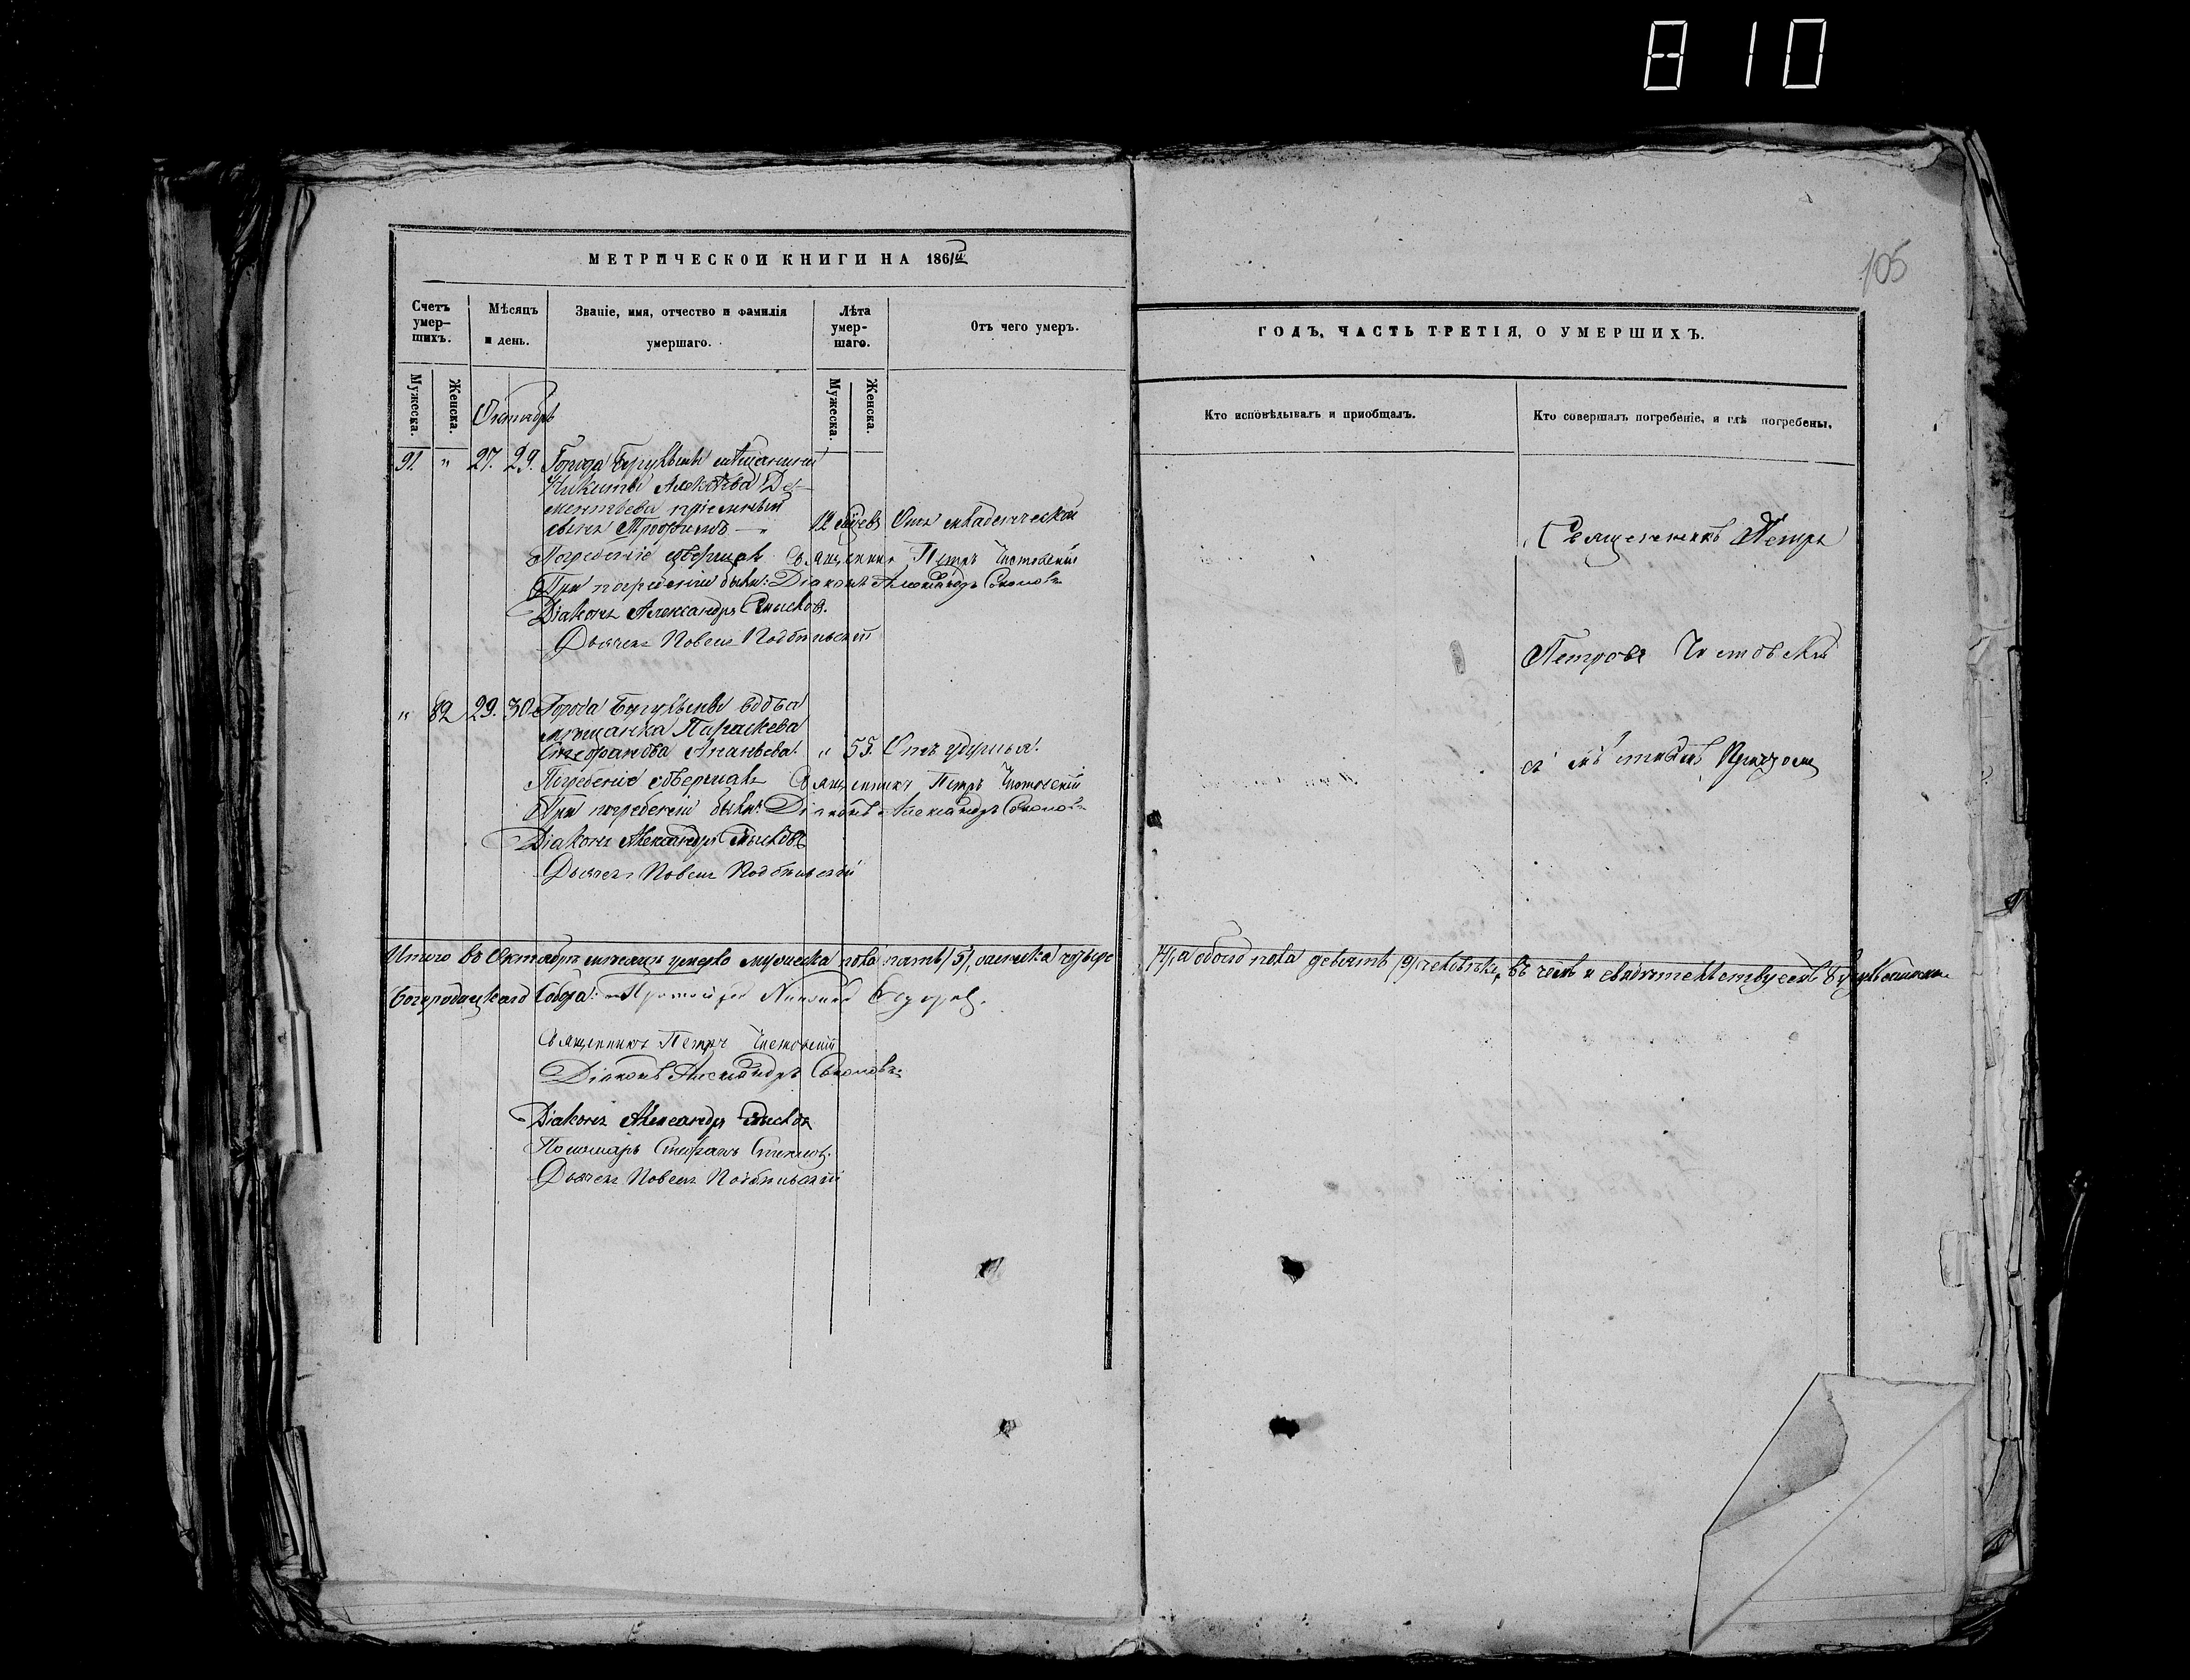 810
105
МЕТРИЧЕСКОЙ КНИГИ НА 1861й
Счетъ умер-шихъ.
Мѣсяцъ и день.
Званіе, имя, отчество и фамилія умершаго.
Лѣта умер-шаго.
Отъ чего умеръ.
Мужеска.
Женска.
Мужеска.
Женска.
Октябрь
91. " 27. 29. Города Бугульмы мѣщанина
Никиты Алексѣева Де-
ментьева пріемный
сынъ Трофимъ — " 12 Отъ младенческой
Погребеніе совершалъ Священникъ Петръ Чистовскій
При погребеніи были: Діаконъ Александръ Соколовъ
Діаконъ Александръ Смысловъ.
Дьячекъ Павелъ Подбѣльскій
" 82 29. 30. Города Бугульмы вдова
мѣщанка Параскева
Стефанова Ананьева. " 55. Отъ удушья.
Погребеніе совершалъ Священникъ Петръ Чистовскій
При погребеніи были: Діаконъ Александръ Соколовъ
Діаконъ Александръ Смысловъ
Дьячекъ Павелъ Подбѣльскій
Итого въ Октябрѣ мѣсяцѣ умерло мужеска пола пять /5/, женска четыре
Богородицкаго Собора: Протоіерей
Священникъ Петръ Чистовскій
Діаконъ Александръ Соколовъ
Діаконъ Александръ Смысловъ
Пономарь Стефанъ
Дьячекъ Павелъ Подбѣльскій
ГОДЪ, ЧАСТЬ ТРЕТІЯ, О УМЕРШИХЪ.
Кто исповѣдывалъ и приобщалъ.
Кто совершалъ погребеніе, и гдѣ погребены.
Священникъ Петръ
Петровъ Чистовскій
съ
/4/, а обоего пола девять /9/ человѣкъ, въ чемъ и свидѣтельствуемъ Бугульминскаго